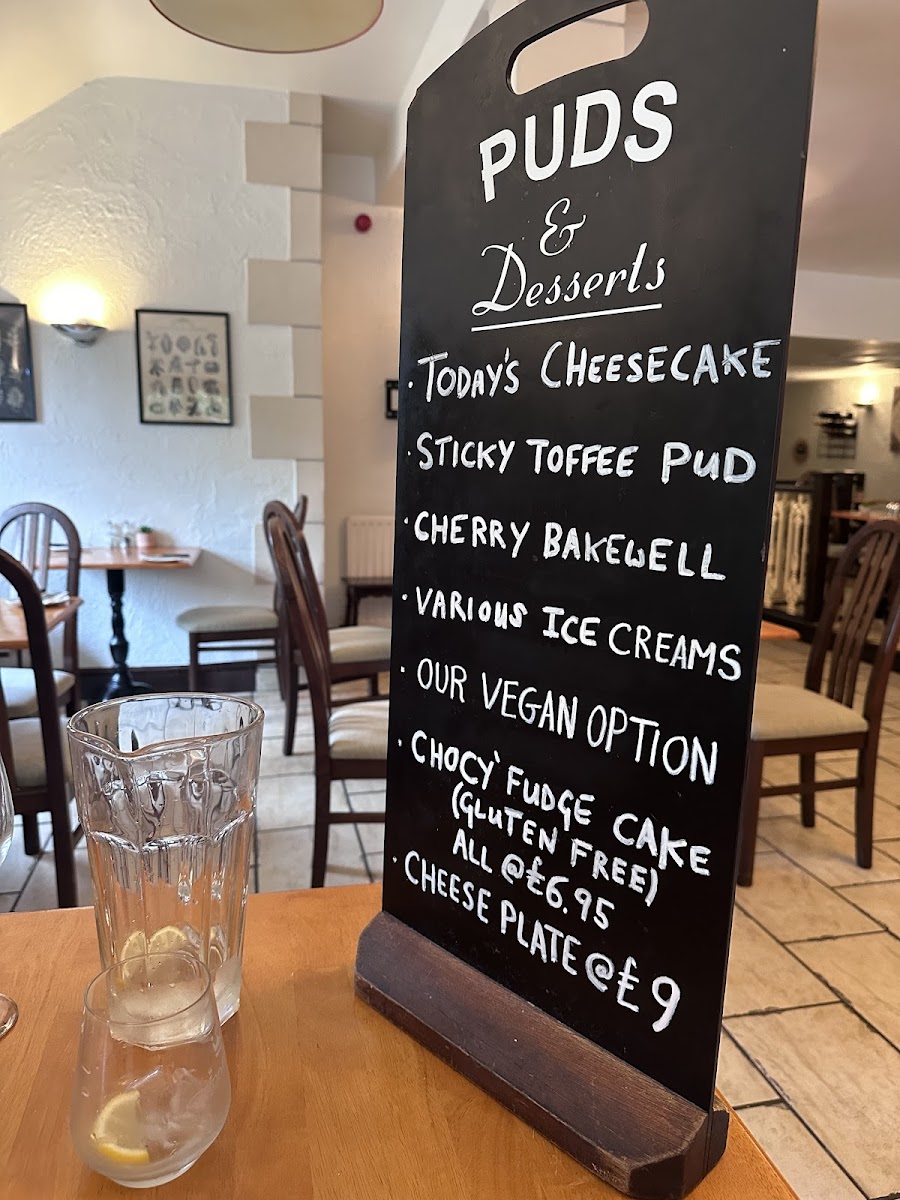 PUDS
&
Desserts
· TODAY'S CHEESECAKE
· STICKY TOFFEE PUD
· CHERRY BAKEWELL
· VARIOUS ICE CREAMS
· OUR VEGAN OPTION
· CHOCY FUDGE CAKE
(GLUTEN FREE)
ALL @ £6.95
· CHEESE PLATE @ £9